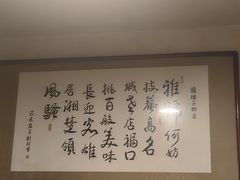 雅號何妨
技藝高名
城老店福口
挑百般美味
長迎客雄
居湘楚領
風騷